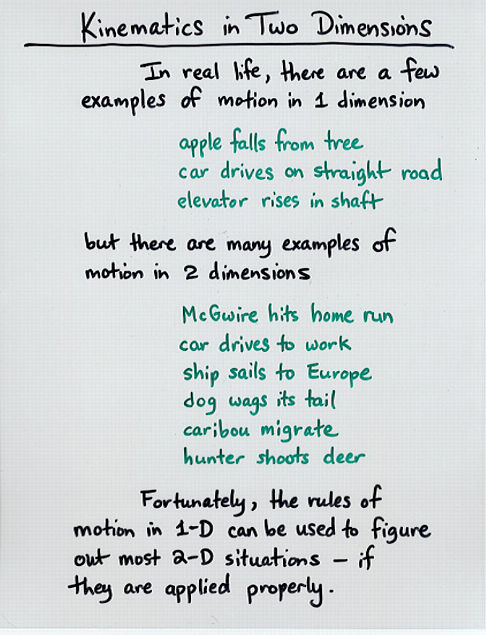 Kinematics in Two Dimensions
In real life, there are a few
examples of motion in 1 dimension
apple falls from tree
car drives on straight road
elevator rises in shaft
but there are many examples of
motion in 2 dimensions
McGwire hits home run
car drives to work
ship sails to Europe
dog wags its tail
caribou migrate
hunter shoots deer
Fortunately, the rules of
motion in 1-D can be used to figure
out most 2-D situations - if
they are applied properly.